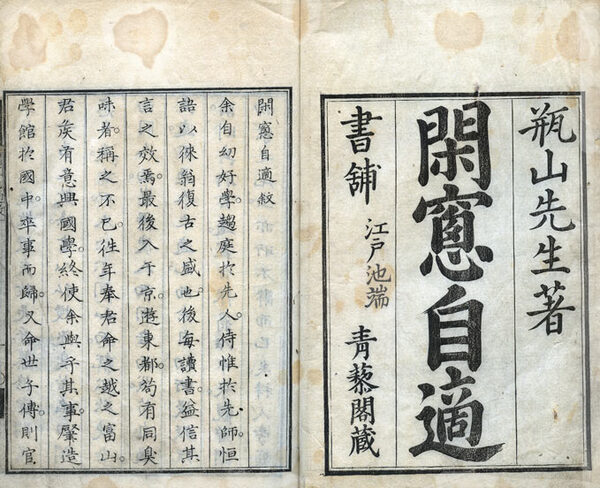 瓶山先生著
閑窓自適
書舗 江戸池端 青藜閣蔵
閑窓自適敘
余自幼好學趨庭於先人侍惟於先師恒
語以徠翁復古之盛也後每讀書益信其
言之效焉最後入于京遊東都苟有同臭
味者稱之不已往年奉君命之越之富山
君矦有意興國學終使余與乎其事肇造
學館於國中卒事而歸又命世子傅則官